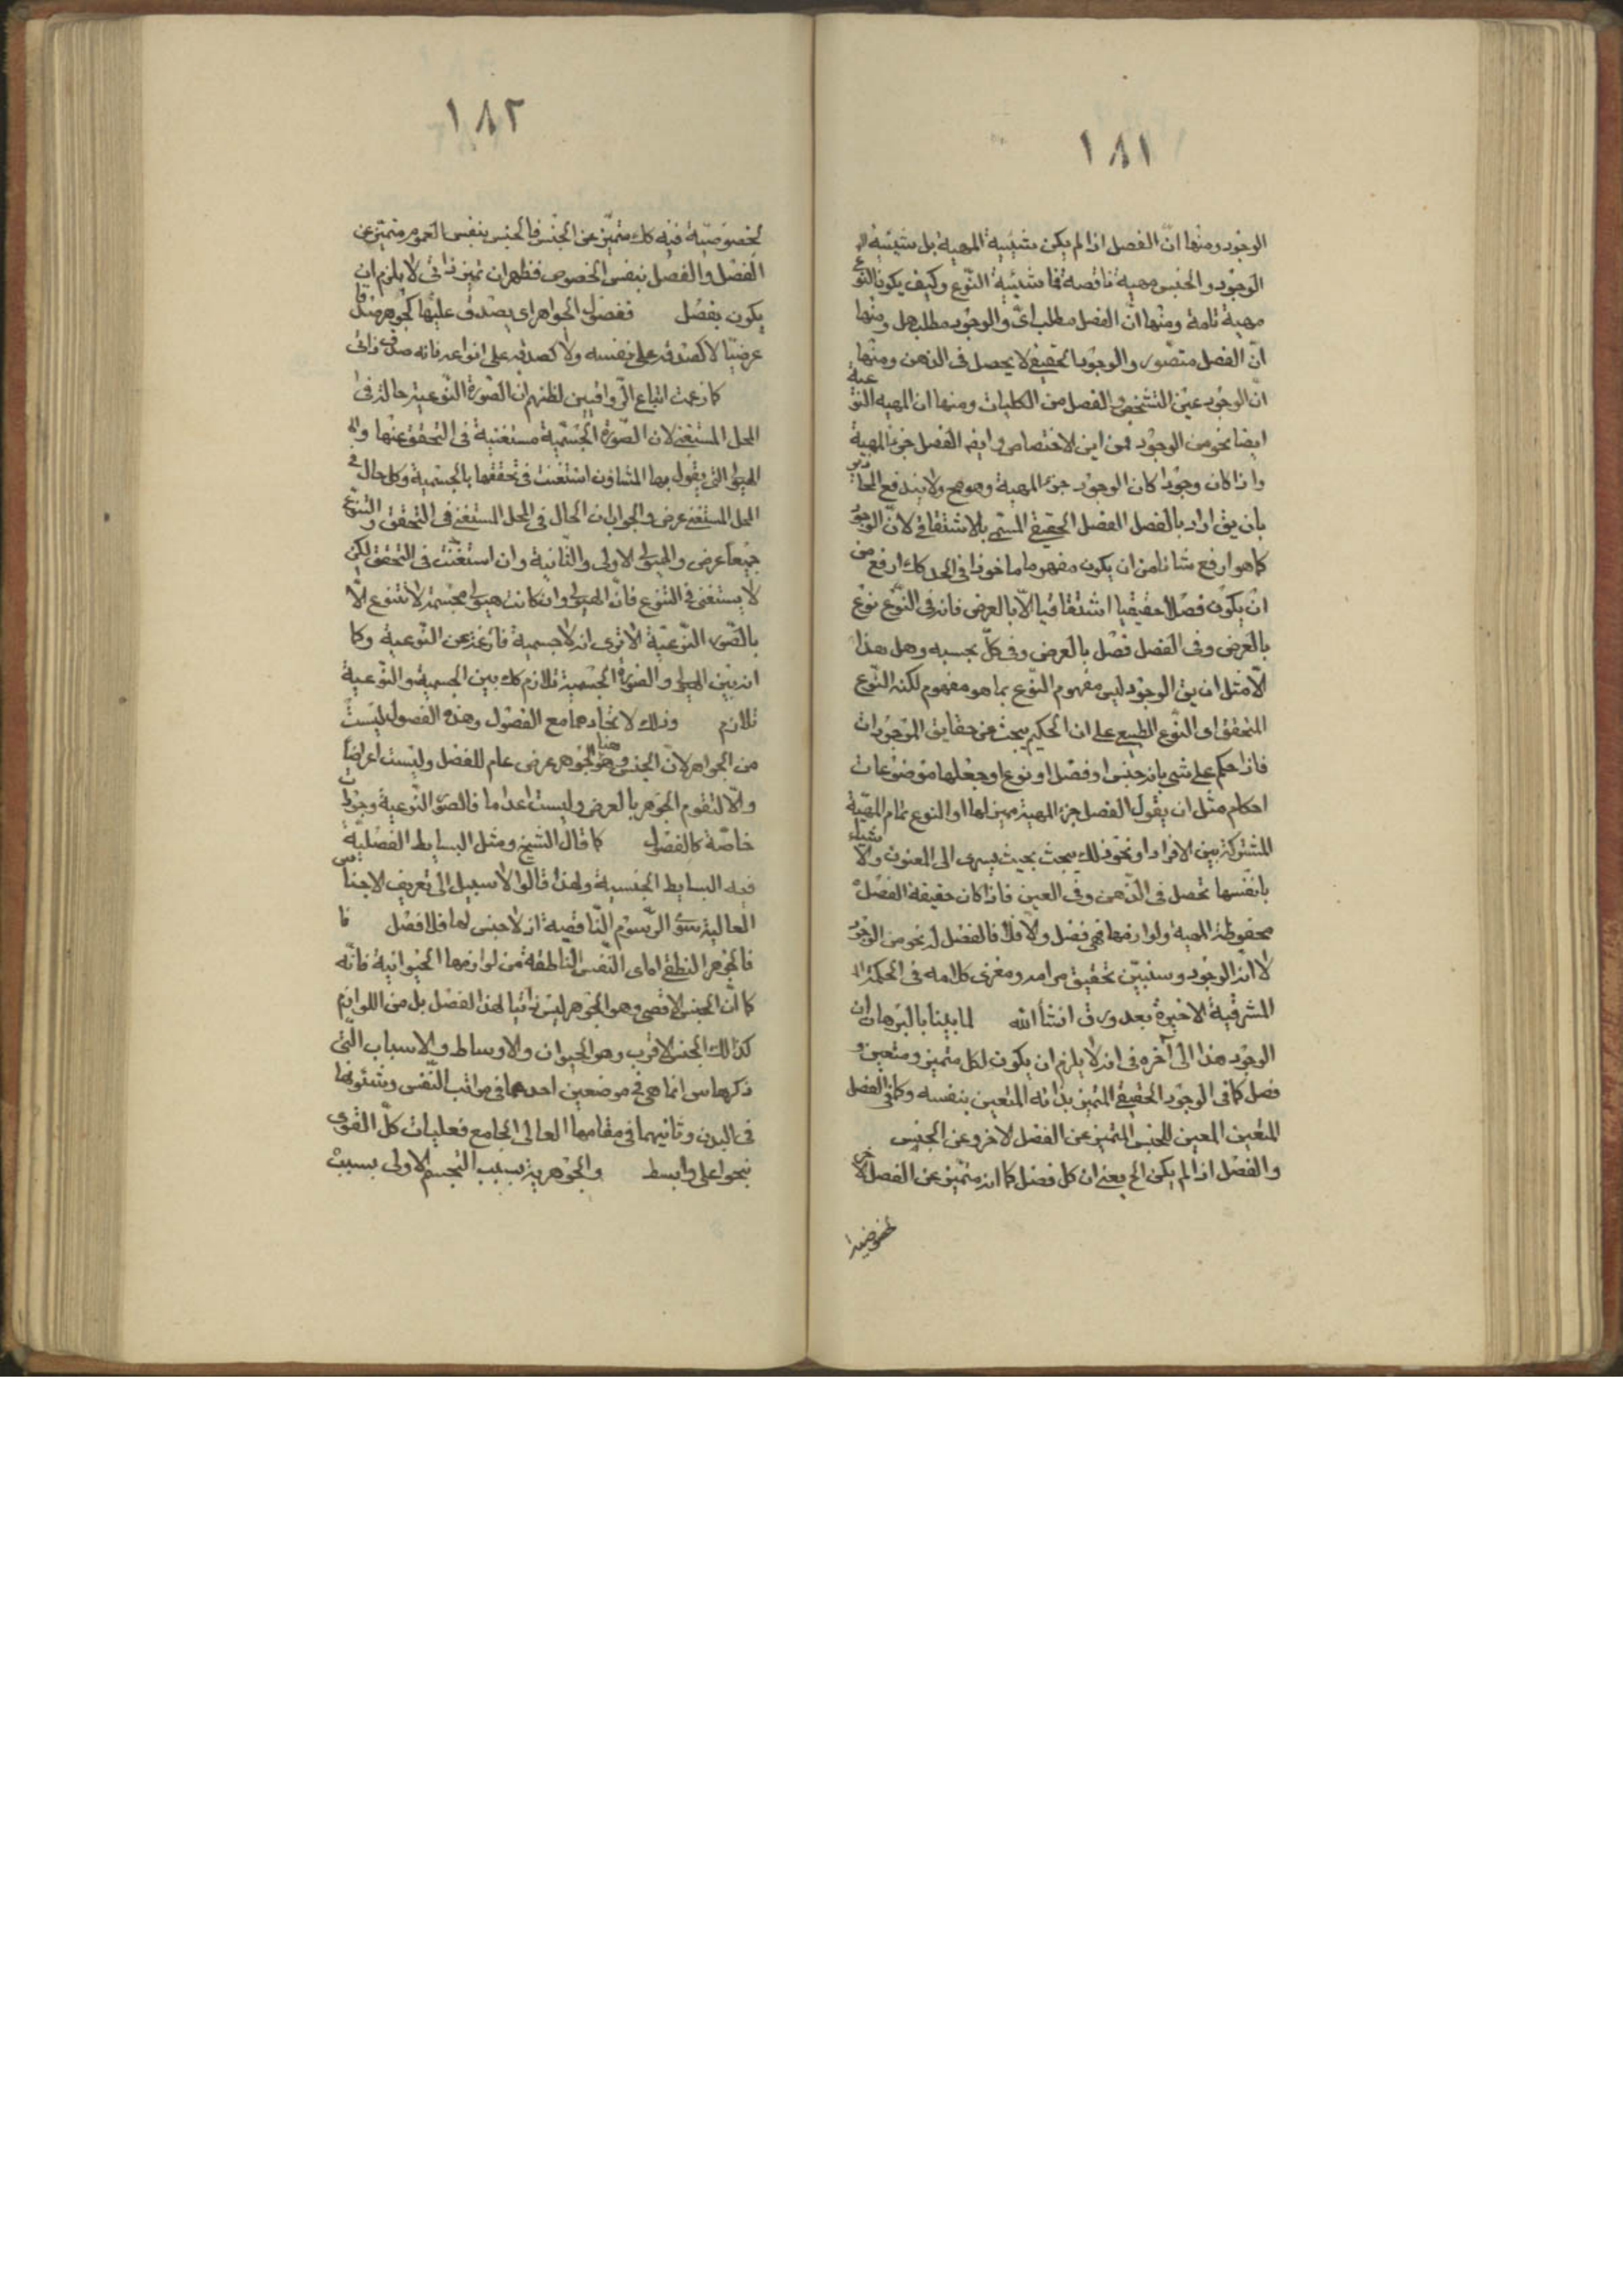 ١٨١
الوجود ومنها انّ الفصل اذا لم يكن شيئية المهية بل شيئية
الوجود والجنس مهية ناقصة فما شيئية النّوع وكيف يكون النّوع
مهية تامة ومنها انّ الفصل مطلب اىّ والوجود مطلب هل ومنها
انّ الفصل متصور والوجود الحقيقى لا يحصل فى الذهن ومنها
انّ الوجود عين التشخص والفصل من الكليات ومنها ان المهية النوعية
ايضا نحو من الوجود فمن اين الاختصاص وايضا الفصل جزء المهية
واذا كان وجودا كان الوجود جزء المهية وهو مح ولا يندفع المحاذير
بان يق اراد بالفصل الفصل الحقيقى المسمى بالاشتقاقى لانّ الوجود
كما هو ارفع شانا من ان يكون مفهوما ماخوذا فى الحد كك ارفع من
ان يكون فصلا حقيقيا اشتقاقيا الّا بالعرض فانه فى النّوع نوع
بالعرض وفى الفصل فصل بالعرض وفى كلّ بحسبه وهل هذا
الّا مثل ان يق الوجود ليس مفهوم النّوع بما هو مفهوم لكنه النّوع
المتحقق او النّوع الطبيعى على ان الحكيم يبحث عن حقايق الموجودات
فاذا حكم على شىء بانه جنس او فصل او نوع او جعلها موضوعات
احكام مثل ان يقول الفصل جزء المهية مميز لها او النوع تمام المهيّة
المشتركة بين الافراد او نحو ذلك يبحث بحيث يسرى الى المعنون والاشياء
بانفسها تحصل فى الذّهن وفى العين فاذا كان حقيقة الفصل
محفوظة المهية ولوازمها فهى فصل والّا فلا فالفصل له نحو من الوجود
لا انّه الوجود وسنبيّن تحقيق مرامه ومغزى كلامه فى الحكمة
المشرقية الاخيرة بعد ورق انشأ الله لما بينا بالبرهان ان
الوجود هذا الى آخره فى انه لا يلزم ان يكون لكل متميز ومتعين
فصل كما فى الوجود الحقيقى المتميز بذاته المتعين بنفسه وكما فى الفصل
المتعين المعين للجنس المتميز عن الفصل الاخر وعن الجنس
والفصل اذا لم يكن الخ يعنى ان كل فصل كما انه متميّز عن الفصل الاخر
لخصوصية
١٨٢
لخصوصيّة فيه كك متميّز عن الجنس فالجنس بنفس العموم متميز عن
الفصل والفصل بنفس الخصوص فظهر ان تميز ذاتى لا يلزم ان
يكون بفصل ففصول الجواهر اى يصدق عليها الجوهر صدقا
عرضيّا لا كصدقه على نفسه ولا كصدقه على انواعه فانه صدق ذاتى
كما زعمت اتباع الرّواقيين لظنهم ان الصّورة النّوعية حالة فى
المحل المستغنى لان الصّورة الجسّمية مستغنية فى التحقق عنها
الهيولى التى يقول بها المشاؤن استغنت فى تحققها بالجسمية وكل حال فى
المحل المستغنى عرض والجواب ان الحال فى المحل المستغنى فى التحقق والتنوّع
جميعا عرض والهيولى الاولى والثانية وان استغنت فى التحقق لكن
لا يستغنى فى التنوّع فانّ الهيولى وان كانت هيولى مجسّمة لا تتنوع الّا
بالصّورة النّوعيّة الا ترى انه لا جسمية فارغة عن النّوعية وكما
ان بين الهيولى والصّورة الجسمية تلازم كك بين الجسمية والنّوعية
تلازم وذلك لاتحادهما مع الفصول وهذه الفصول ليست
من الجواهر لانّ الجنس وهو هنا الجوهر عرض عام للفصل وليست اعراضا
والّا لتقوم الجوهر بالعرض وليست اعداما فالصّور النّوعية وجودات
خاصّة كالفصول كما قال الشيخ ومثل البسايط الفصليّة
فيه البسايط الجنسية ولهذا قالوا لا سبيل الى تعريف الاجناس
العالية سوى الرّسوم النّاقصة اذ لا جنس لها فلا فصل
فالجوهر النطقى اى النّفس النّاطقة من لوازمها الحيوانية فانّه
كما انّ الجنس الاقصى وهو الجوهر ليس ذاتيا لهذا الفصل بل من اللوازم
كذلك الجنس الاقرب وهو الحيوان والاوساط والاسباب الّتى
ذكرها س انما هى فى موضعين احدهما فى مراتب النّفس وشئونها
فى البدن وثانيهما فى مقامها العالى الجامع فعليات كلّ القوى
بنحو اعلى وابسط والجوهرية بسبب التجسم الاولى بسبب